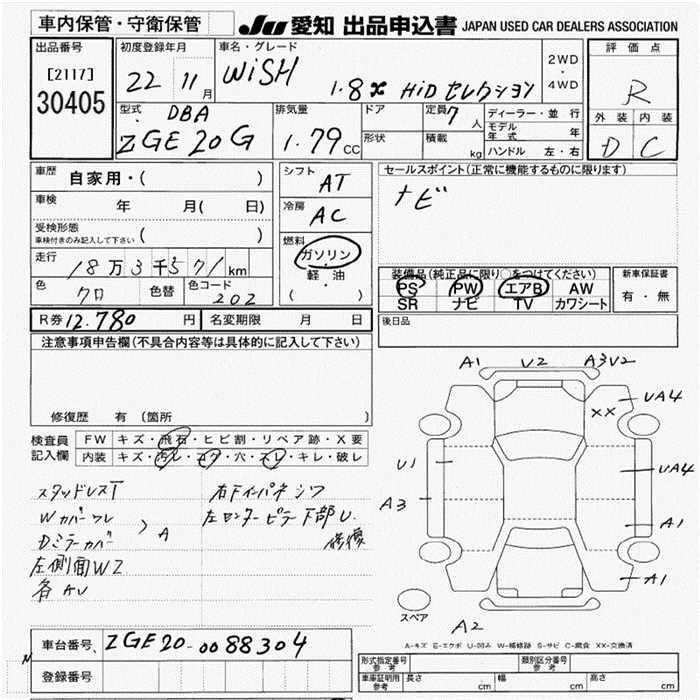 車内保管・守衛保管
JU 愛知 出品申込書 JAPAN USED CAR DEALERS ASSOCIATION
出品番号
[2117]
30405
初度登録年月
22 11月
車名・グレード
WiSH 1.8X HiDセレクション
2WD
・
4WD
評価点
R
外装 内装
D C
型式
DBA
ZGE20G
排気量
1.79cc
ドア
形状
定員 7人
積載 kg
ディーラー・並行
モデル年式 年
ハンドル 左・右
車歴 自家用・( )
車検 年 月( 日)
受検形態
車検付きのみ記入して下さい ( )
走行 18万3千571km
色 クロ 色替 色コード 202
シフト AT
冷房 AC
燃料
ガソリン
・
軽・油
( )
セールスポイント(正常に機能するものに限ります)
ナビ
装備品(純正品に限り○をつけてください)
PS PW エアB AW
SR ナビ TV カワシート
新車保証書
有・無
後日品
R券 12.780 円 名変期限 月 日
注意事項申告欄(不具合内容等は具体的に記入して下さい)
修復歴 有 (箇所 )
検査員記入欄
FW キズ・飛石・ヒビ割・リペア跡・X要
内装 キズ・汚レ・コゲ・穴・スレ・キレ・破レ
スタッドレスT
Wカバーワレ
Dミラーカバー > A
左側面W2
各AU
右下イーパネシワ
左センターピラー下部U.
修復
A1 U2 A3U2
XX UA4
U1 UA4
A3 A1
A1
スペア
A2
A-キズ E-エクボ U-凹み W-補修跡 S-サビ C-腐食 XX-交換済
車台番号 ZGE20-0088304
登録番号
N
形式指定番号
参考
類別区分番号
参考
車庫証明用
参考
長さ cm 幅 cm 高さ cm